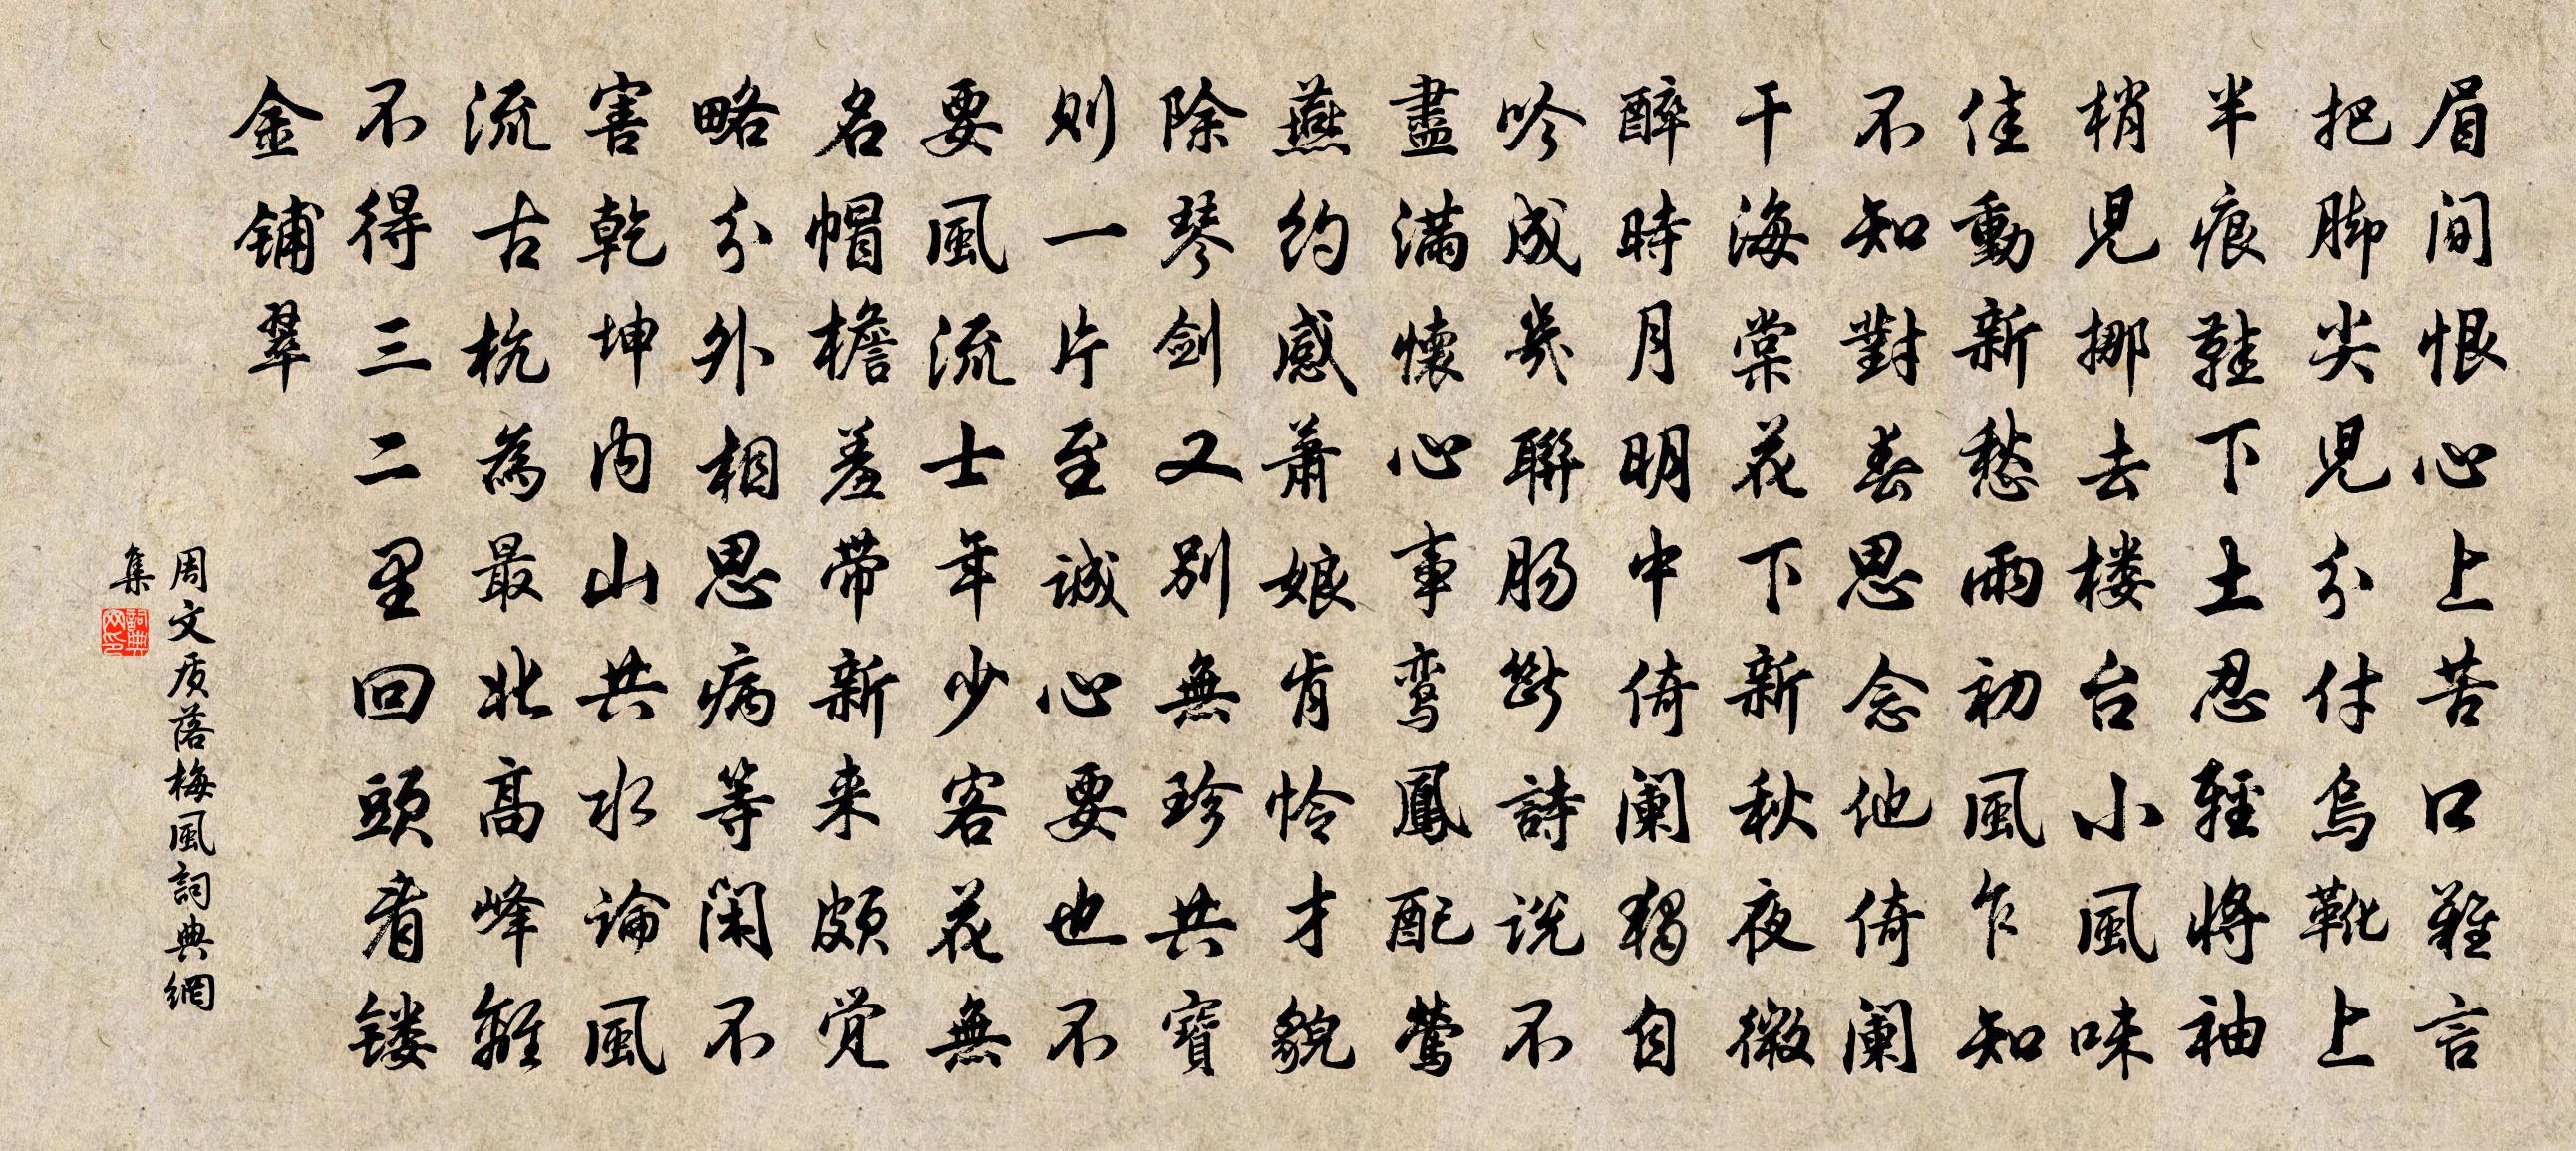 眉间恨心上苦口難言
把脚尖兒分付烏靴上
半痕鞋下土忍輕將袖
梢兒挪去楼台小風味
佳動新愁雨初風乍知
不知對春思念他倚阑
干海棠花下新秋夜微
醉時月明中倚阑獨自
吟成幾聯肠斷詩说不
盡滿懷心事鸾鳳配莺
燕约感萧娘肯怜才貌
除琴剑又别無珍共寶
则一片至诚心要也不
要風流士年少客花無
名帽檐羞带新来颇觉
略分外相思病等闲不
害乾坤内山共水論風
流古杭為最北高峰離
不得三二里回頭看镂
金铺翠
周文质落梅風詞典網
集
詞典網印